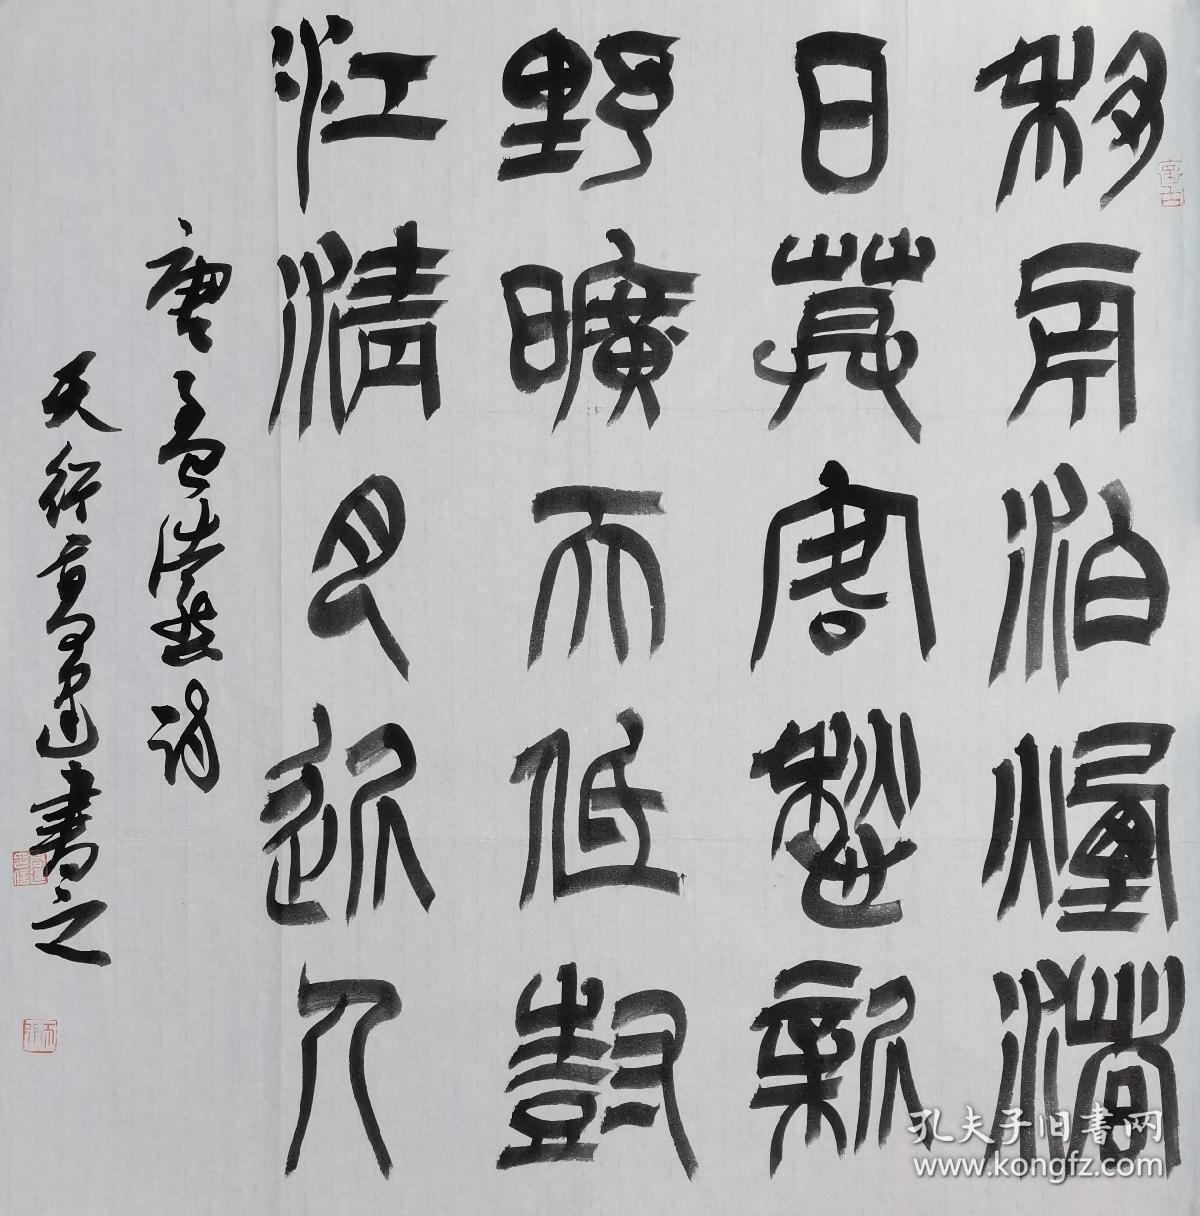 移舟泊煙渚
日暮客愁新
野曠天低樹
江清月近人
唐孟浩然詩
天行高書之
孔夫子旧書网
www.kongfz.com